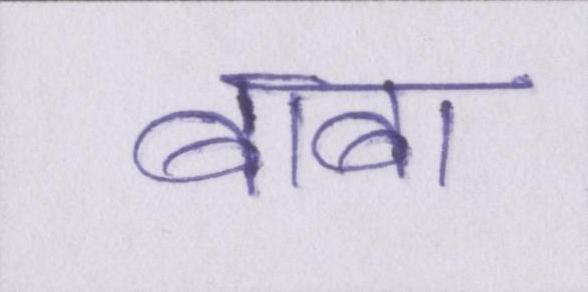 बाबा